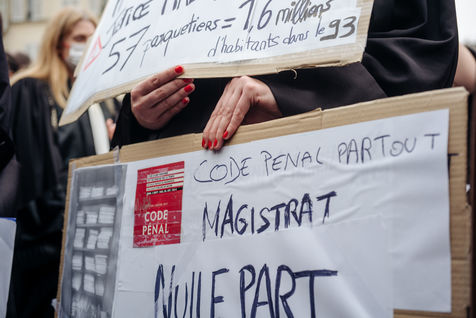 57 parquetiers = 1,6 millions
d'habitants dans le 93
CODE PENAL PARTOUT
CODE
PÉNAL
MAGISTRAT
NULLE PART